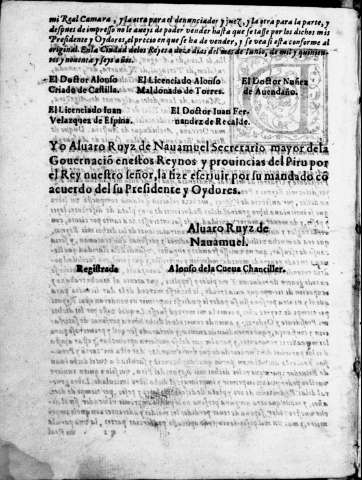 mi Real Camara, y la otra para el denunciador y juez, y la otra para la parte, y
despues de impresso no le aueys de poder vender hasta que se tasse por los dichos mis
Presidente y Oydores, al precio en que se ha de vender, y se vea si esta conforme al
original. En la Ciudad de los Reyes a doze dias del mes de Iunio, de mil y quinien-
tos y nouenta y seys años.
El Doctor Alonso El Licenciado Alonso El Doctor Nuñez
Criado de Castilla. Maldonado de Torres. de Auendaño.
El Licenciado Iuan El Doctor Iuan Fer-
Velazquez de Espina. nandez de Recalde.
Yo Aluaro Ruyz de Nauamuel Secretario mayor de la
Gouernació en estos Reynos y prouincias del Piru por
el Rey nuestro señor, la fize escriuir por su mandado cõ
acuerdo del su Presidente y Oydores.
Aluaro Ruyz de
Nauamuel.
Registrada Alonso de la Cueua Chanciller.